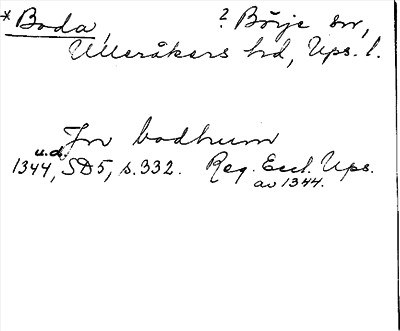 * Boda, ? Börje sn,
Ulleråkers hd, Ups. l.
In bodhum
u.d.
1344, SD5, s.332. Reg. Eccl. Ups.
av 1344.